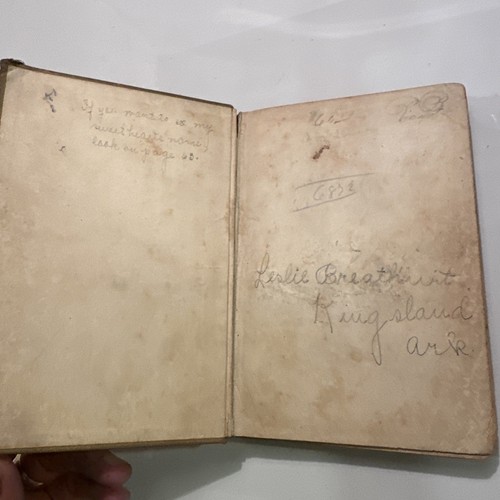 If you want to see my
sweethearts name,
look on page 60.
6832
Leslie Breathwit
Kingsland
Ark